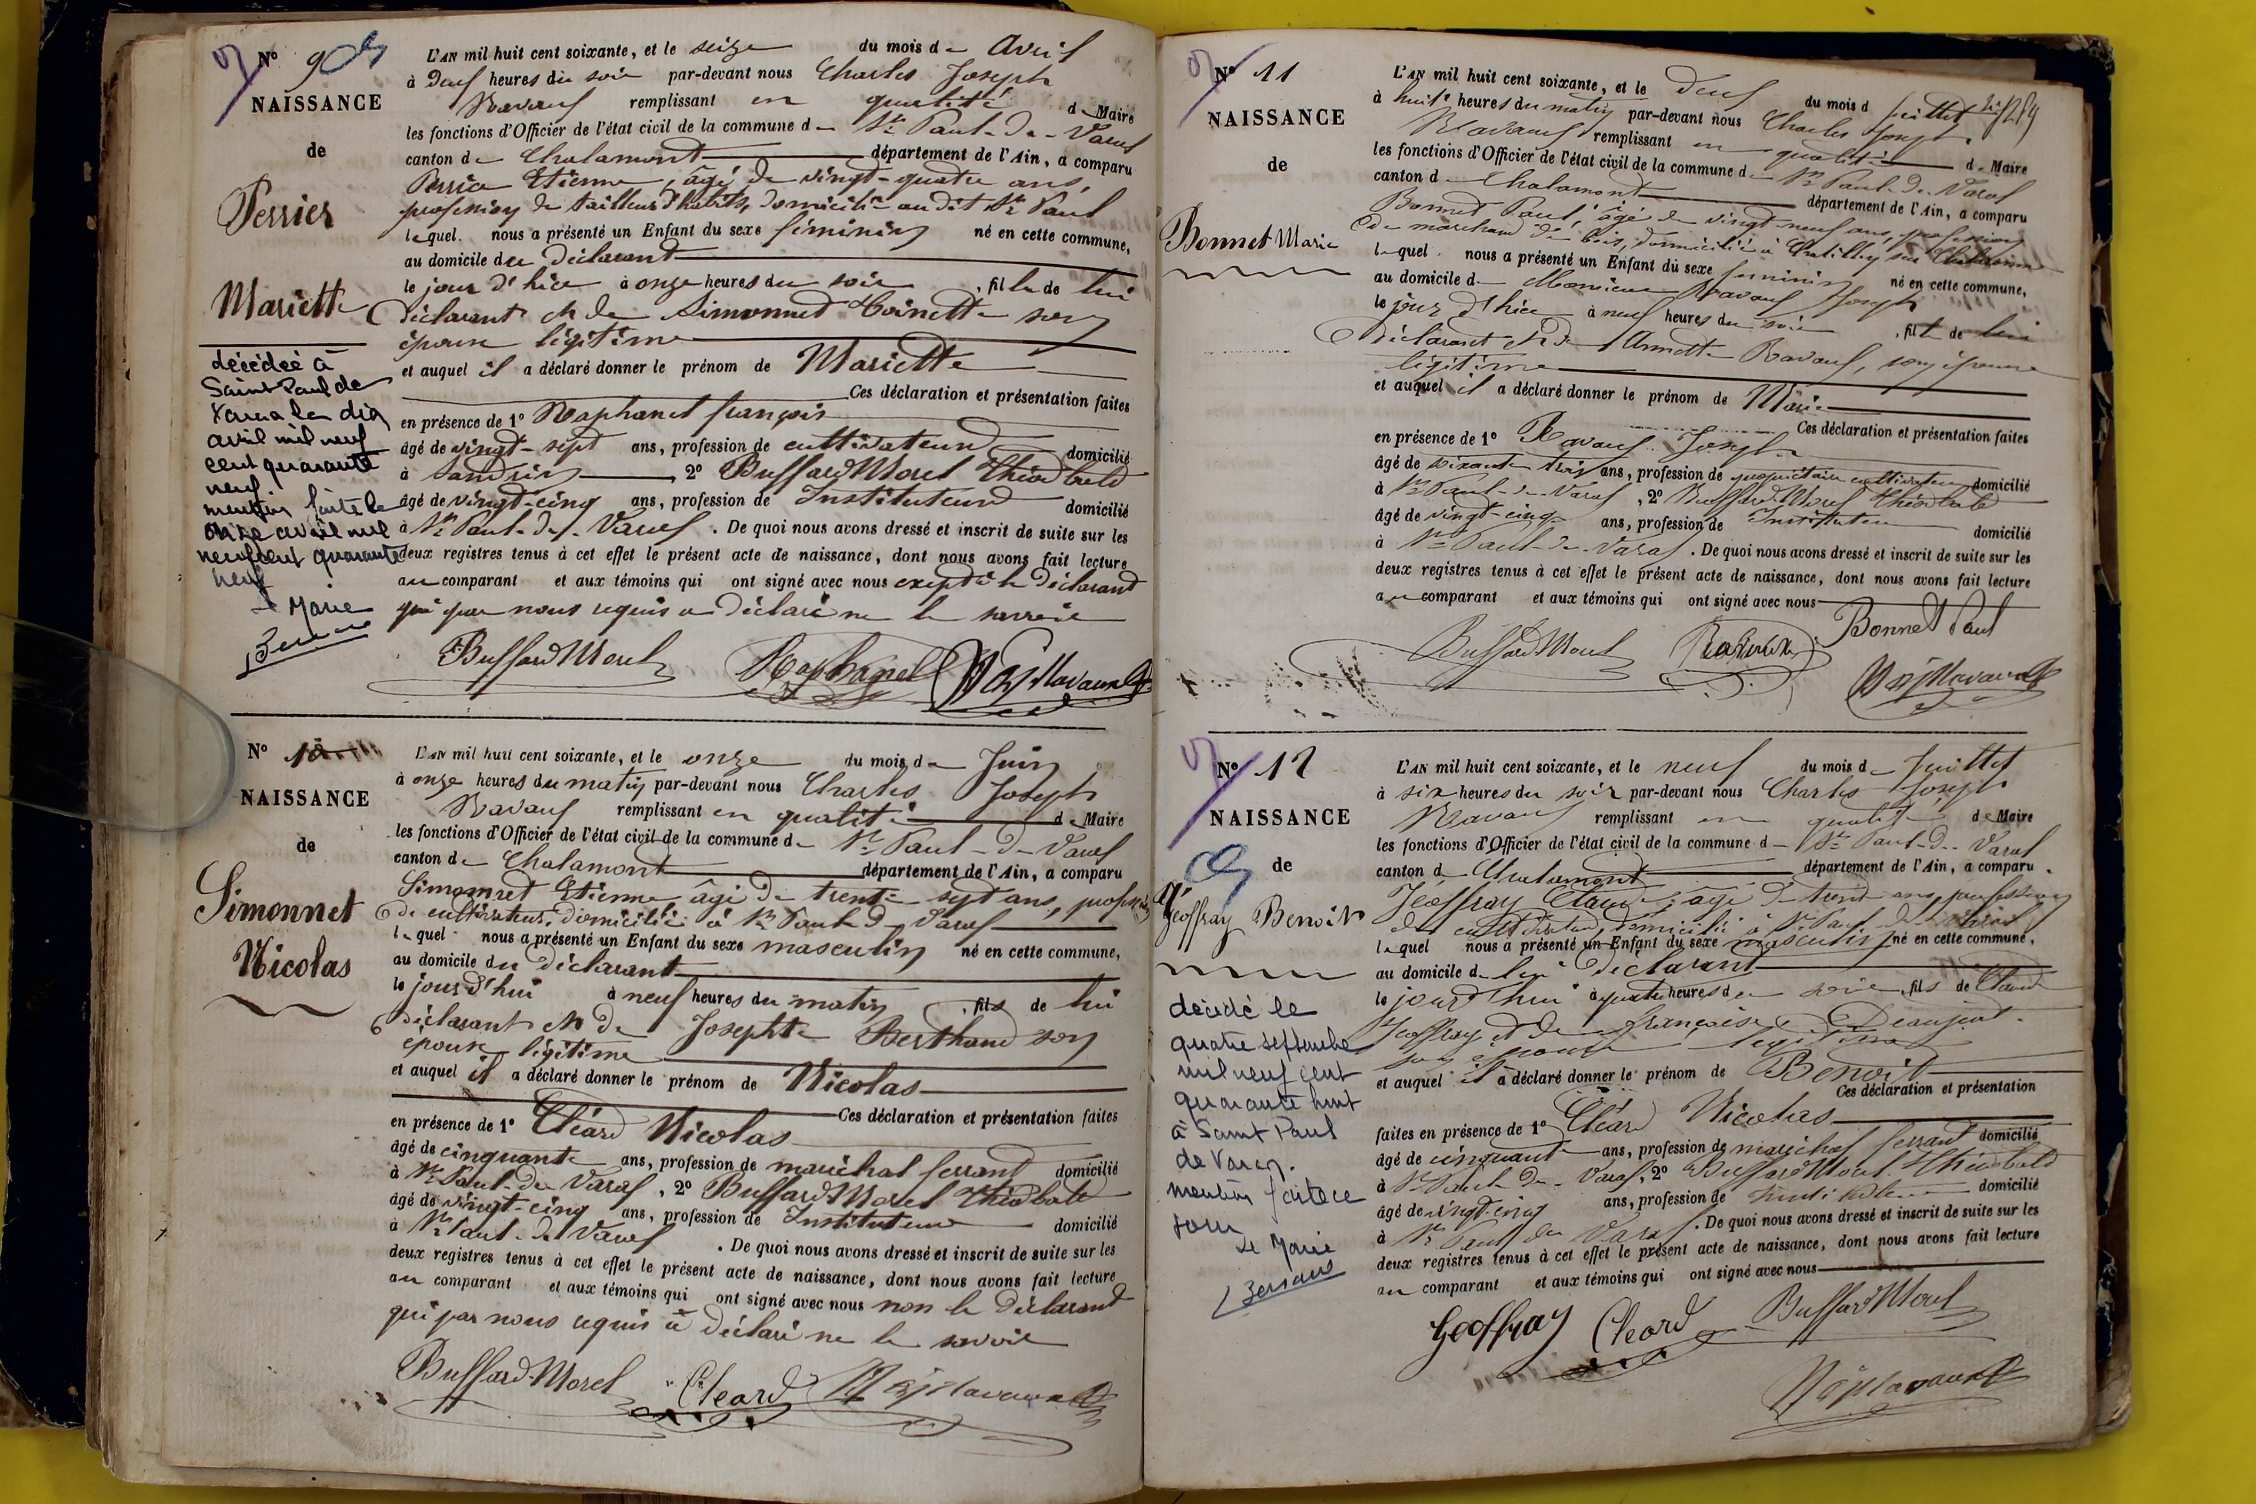 N° 9
NAISSANCE
de
Perrier
Mariette
décédée à
Saint Paul de
Varax le dix
avril mil neuf
cent quarante
neuf.
mention faite le
onze avril mil
neuf cent quarante
neuf
Le Maire
L'AN mil huit cent soixante, et le seize du mois de Avril
à deux heures du soir par-devant nous Charles Joseph
Ravaux remplissant en qualité de Maire
les fonctions d'Officier de l'état civil de la commune de St Paul-de-Varax
canton de Chalamont département de l'Ain, a comparu
Perrier Etienne, âgé de vingt-quatre ans,
profession de tailleur d'habits, domicilié au dit St Paul
lequel nous a présenté un Enfant du sexe féminin né en cette commune,
au domicile du déclarant
le jour d'hier à onze heures du soir, fille de lui
déclarant et de Simonnet Toinette son
épouse légitime
et auquel il a déclaré donner le prénom de Mariette
Ces déclaration et présentation faites
en présence de 1° Raphanel françois
âgé de vingt-sept ans, profession de cultivateur domicilié
à Sandrin, 2° Buffard Morel Théodbald
âgé de vingt-cinq ans, profession de Instituteur domicilié
à St Paul-de-Varax. De quoi nous avons dressé et inscrit de suite sur les
deux registres tenus à cet effet le présent acte de naissance, dont nous avons fait lecture
au comparant et aux témoins qui ont signé avec nous excepté le déclarant
qui par nous requis a déclaré ne le savoir
Buffard Morel Raphanel Ravaux
N° 10
NAISSANCE
de
Simonnet
Nicolas
L'AN mil huit cent soixante, et le onze du mois de Juin
à onze heures du matin par-devant nous Charles Joseph
Ravaux remplissant en qualité de Maire
les fonctions d'Officier de l'état civil de la commune de St Paul-de-Varax
canton de Chalamont département de l'Ain, a comparu
Simonnet Etienne, âgé de trente-sept ans, profession
de cultivateur, domicilié à St Paul de Varax
lequel nous a présenté un Enfant du sexe masculin né en cette commune,
au domicile du déclarant
le jour d'hui à neuf heures du matin, fils de lui
déclarant et de Josephte Berthaud son
épouse légitime
et auquel il a déclaré donner le prénom de Nicolas
Ces déclaration et présentation faites
en présence de 1° Cléard Nicolas
âgé de cinquante ans, profession de maréchal ferrant domicilié
à St Paul-de Varax, 2° Buffard Morel Théodbald
âgé de vingt-cinq ans, profession de Instituteur domicilié
à St Paul-de Varax. De quoi nous avons dressé et inscrit de suite sur les
deux registres tenus à cet effet le présent acte de naissance, dont nous avons fait lecture
au comparant et aux témoins qui ont signé avec nous non le déclarant
qui par nous requis a déclaré ne le savoir
Buffard-Morel Cleard Ravaux
N° 11
NAISSANCE
de
Bonnet Marie
L'AN mil huit cent soixante, et le deux du mois d juillet
à huit heures du matin par-devant nous Charles Joseph
Ravaux remplissant en qualité de Maire
les fonctions d'Officier de l'état civil de la commune de St Paul-de-Varax
canton de Chalamont département de l'Ain, a comparu
Bonnet Paul, âgé de vingt neuf ans, profession
de marchand de bois, domicilié à Chatillon sur Chalaronne
lequel nous a présenté un Enfant du sexe feminin né en cette commune,
au domicile de Monsieur Ravaux Joseph
le jour d'hier à neuf heures du soir, fille de lui
déclarant et de Annette Ravaux, son épouse
légitime
et auquel il a déclaré donner le prénom de Marie
Ces déclaration et présentation faites
en présence de 1° Ravaux Joseph
âgé de soixante trois ans, profession de propriétaire cultivateur domicilié
à St Paul-de-Varax, 2° Buffard-Morel Théodbald
âgé de vingt-cinq ans, profession de Instituteur domicilié
à St Paul-de-Varax. De quoi nous avons dressé et inscrit de suite sur les
deux registres tenus à cet effet le présent acte de naissance, dont nous avons fait lecture
au comparant et aux témoins qui ont signé avec nous
Bonnet Paul
Buffard Morel Ravaux
Ravaux
N° 12
NAISSANCE
de
Geoffray Benoit
décédé le
quatre septembre
mil neuf cent
quarante huit
à Saint Paul
de Varax.
mention faite ce
jour
Le Maire
L'AN mil huit cent soixante, et le neuf du mois de Juillet
à six heures du soir par-devant nous Charles Joseph
Ravaux remplissant en qualité de Maire
les fonctions d'Officier de l'état civil de la commune de St Paul-de-Varax
canton de Chalamont département de l'Ain, a comparu
Geoffray Claude, âgé de trente ans, profession
de cultivateur, domicilié à St Paul de Varax
lequel nous a présenté un Enfant du sexe masculin né en cette commune,
au domicile de lui déclarant
le jour d'hui à quatre heures du soir, fils de Claude
Geoffray et de françoise Deaujeat
son épouse légitime
et auquel il a déclaré donner le prénom de Benoit
Ces déclaration et présentation
faites en présence de 1° Cléard Nicolas
âgé de cinquante ans, profession de maréchal ferrant domicilié
à St Paul de Varax, 2° Buffard Morel Théodbald
âgé de vingt-cinq ans, profession de Instituteur domicilié
à St Paul de Varax. De quoi nous avons dressé et inscrit de suite sur les
deux registres tenus à cet effet le présent acte de naissance, dont nous avons fait lecture
au comparant et aux témoins qui ont signé avec nous
Geoffray Cleard Buffard Morel
Ravaux